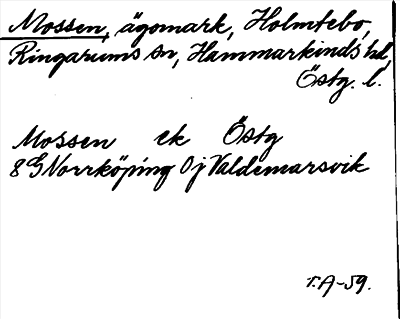 Mossen, ägomark, Holmtebo,
Ringarums sn, Hammarkinds hd,
Östg. l.
Mossen ek Östg
8 G Norrköping 0j Valdemarsvik
T.A-59.